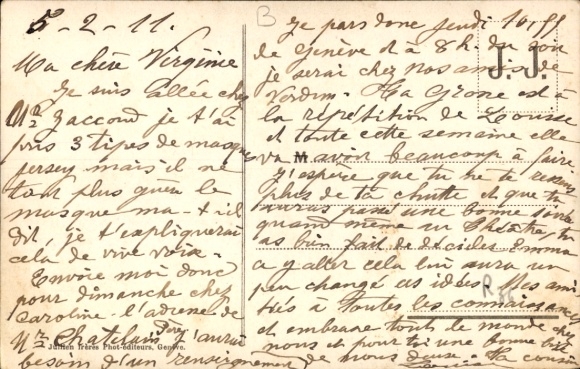 5-2-11.
Ma chère Virginie
Je suis allée chez
Mr Jaccond je t'ai
pris 3 tipes de masque
jersey mais il ne
tont plus guère le
masque ma-t-il
dit, je t'expliquerai
cela de vive voix.
Envoie moi donc
pour dimanche chez
Caroline l'adresse de
Mr Chatelain père j'aurai
besoin d'un renseignement
Jullien frères Phot-éditeurs, Genève.
B
Je pars donc jeudi
de Genève et à 8 h. du soir
je serai chez nos amis de
J. J.
Verdun. - La Grone est à
la répétition de
et toute cette semaine elle
va avoir beaucoup à faire
J'espère que tu ne te
plus de ta chutte et que tu
auras passé une bonne
quand même au théâtre, tu
as bien fait de décider Emma
a y aller cela lui aura un
peu changé les idées. Mes ami-
tiés à toutes les connaissances
et embrasse tout le monde chez
nous et pour toi une bonne
de nous deux. Ta